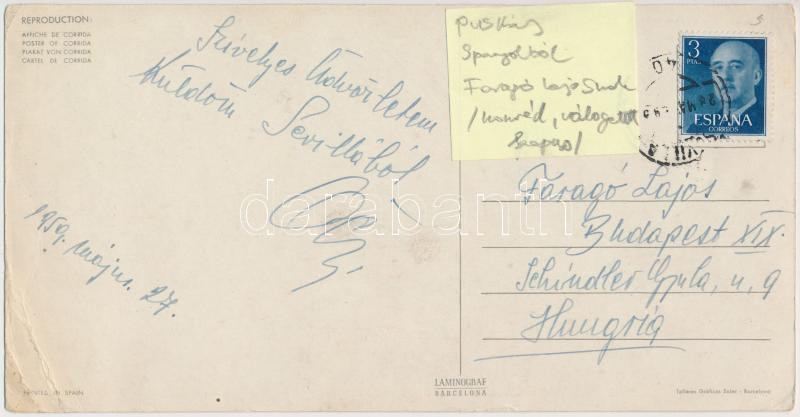 REPRODUCTION:
AFFICHE DE CORRIDA
POSTER OF CORRIDA
PLAKAT VON CORRIDA
CARTEL DE CORRIDA
Szívélyes Üdvözletem
Küldöm Sevillából
1959. május. 27.
Puskás
Spanyolból
Faragó Lajosnak
/honvéd, válogatott
3
PTAS
ESPAÑA
CORREOS
Faragó Lajos
Budapest XIX.
Schindler Gyula, u, 9
Hungria
darabanth
PRINTED IN SPAIN
LAMINOGRAF
BARCELONA
Talleres Gráficos Soler - Barcelona